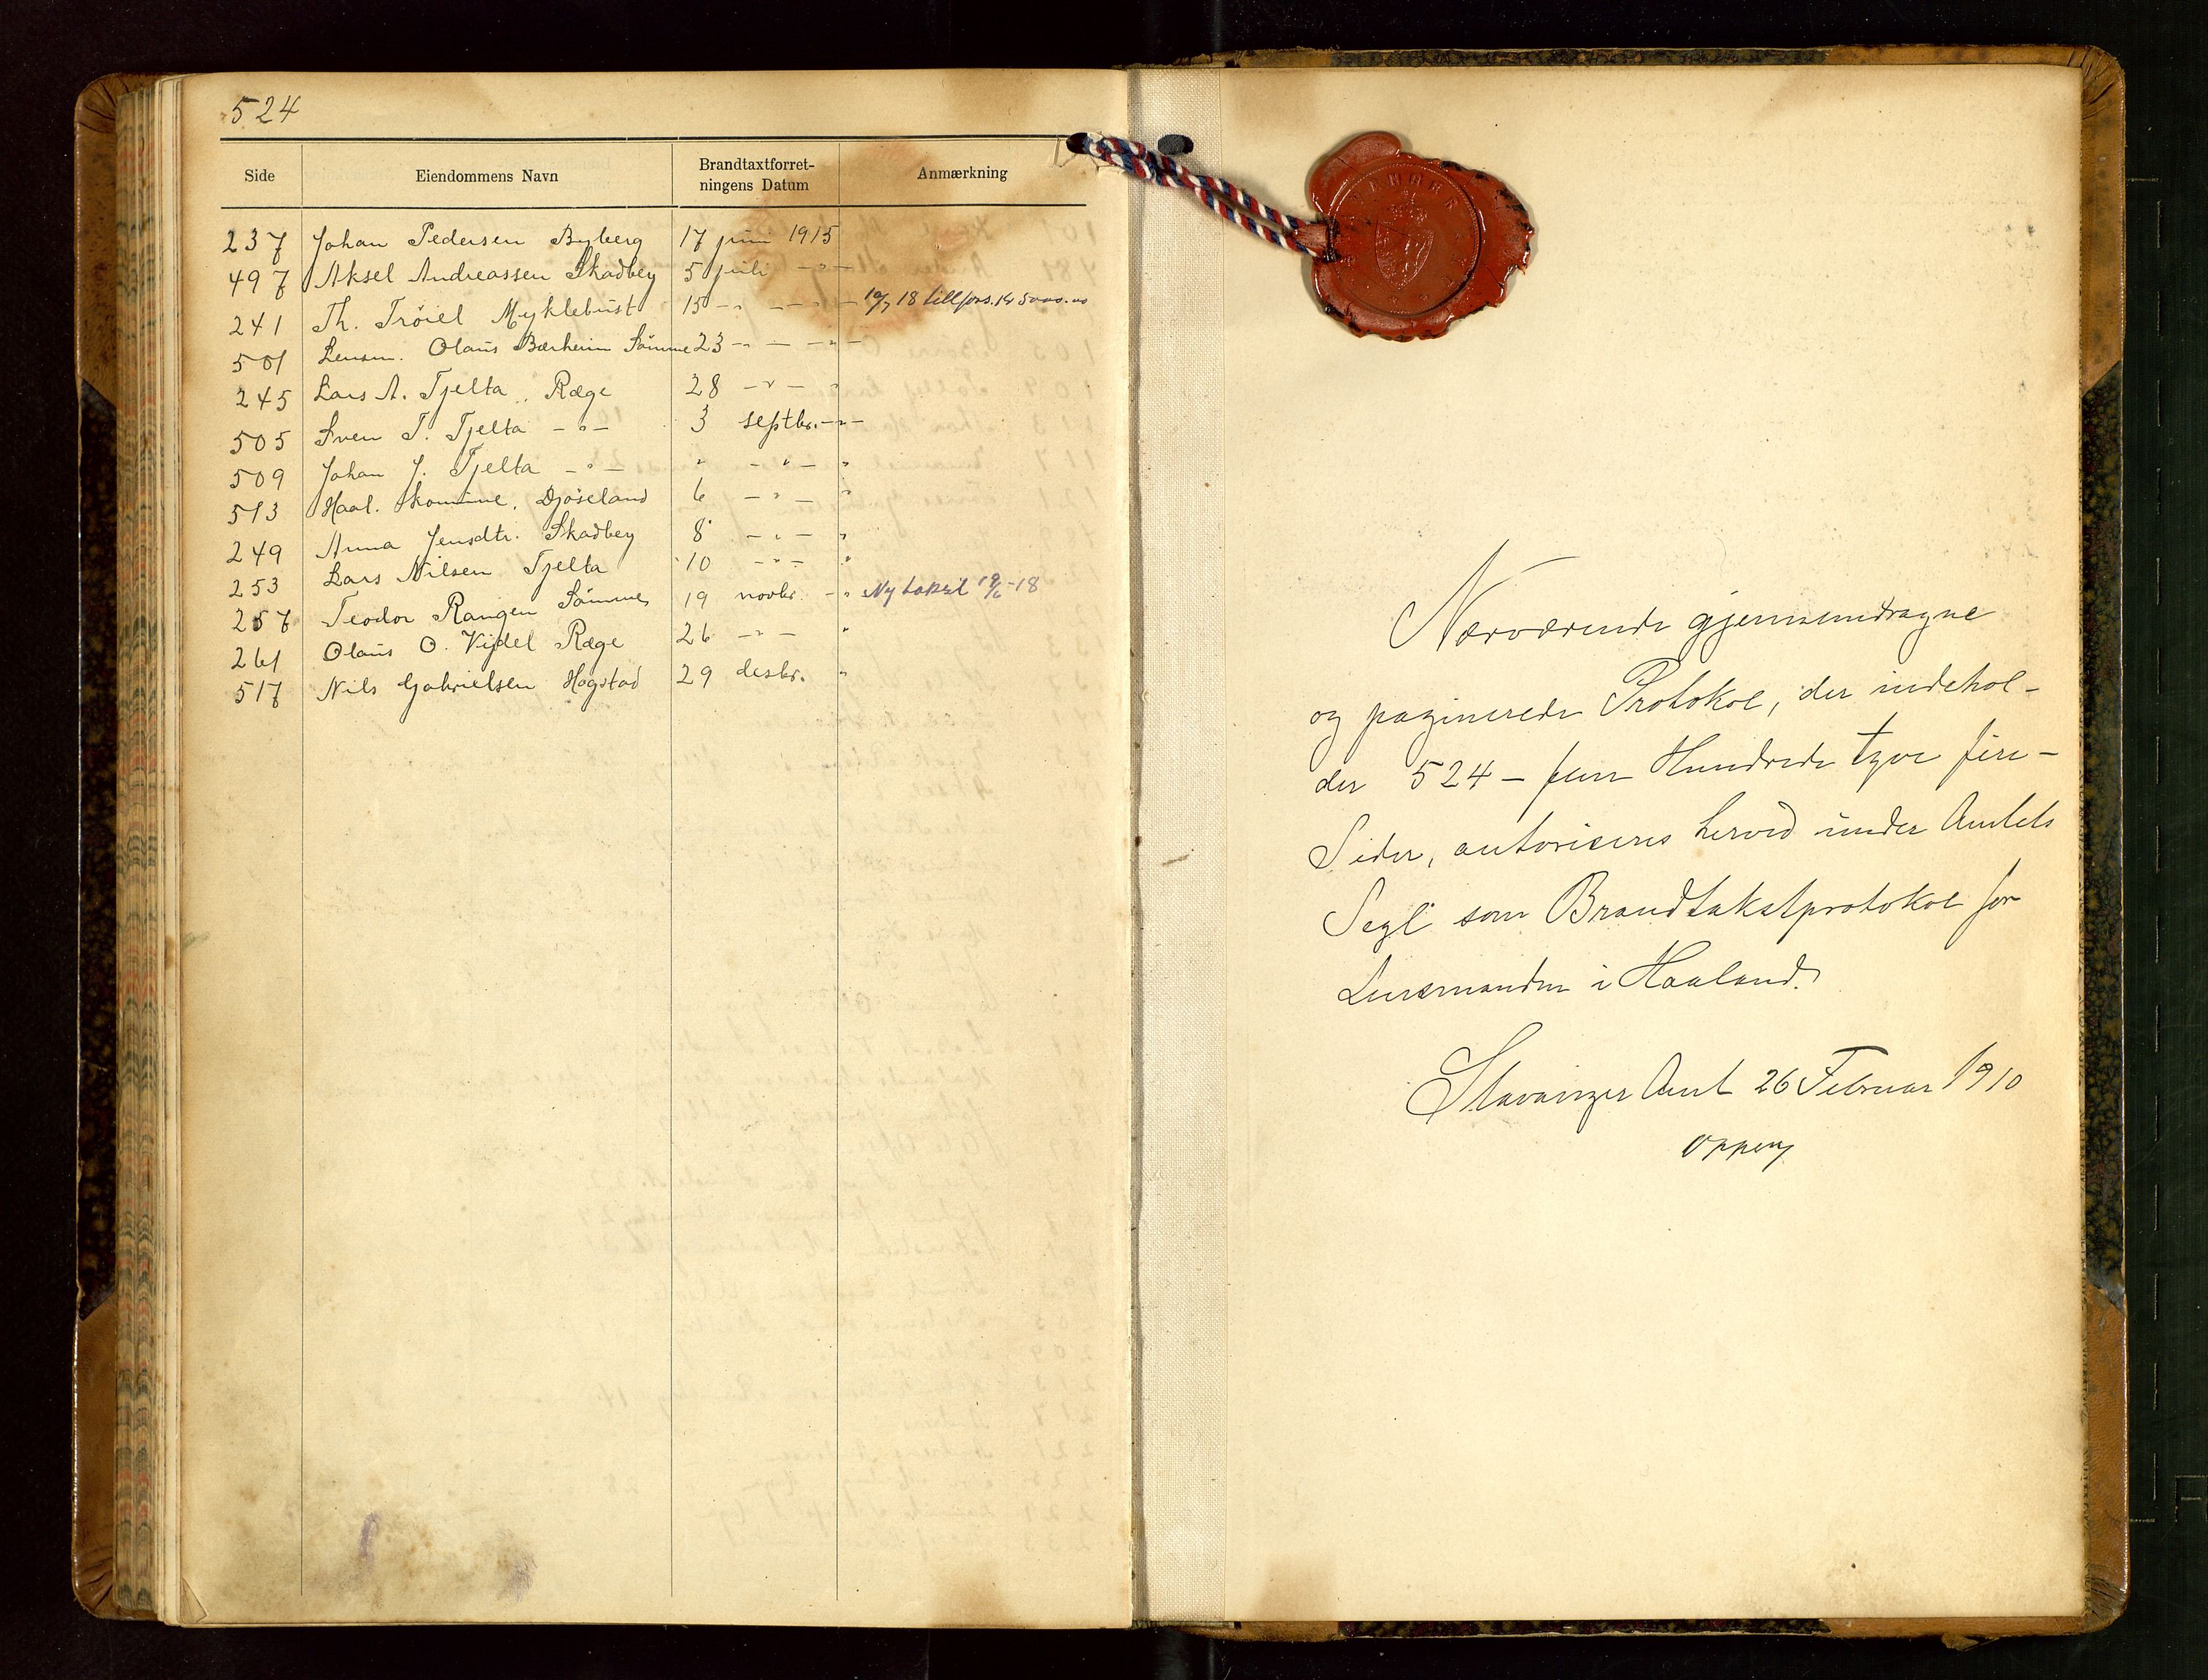 524
Side Eiendommens Navn Brandtaxtforret-
ningens Datum Anmærkning
237 Johan Pedersen Byberg 17 juni 1915
497 Aksel Andreassen Skadbeg 5 juli -"-
241 Th. Tröiel Myklebust 15 -"- -"- 18 tillfors. kr 5000.00
501 Lensm. Olaus Bærheim Sömme 23 -"- -"-
245 Lars A. Tjelta, Ræge 28 -"- "
505 Sven T. Tjelta -"- 3 septbr. -"-
509 Johan J. Tjelta -"- " -"- "
513 Haal. komune, Djöseland 6 -"- "
249 Anna Jensdtr. Skadbeg 8 -"- "
253 Lars Nilsen Tjelta 10 -"- "
257 Teodor Rangen Sömme 19 novbr. -" Ny takst 19/6-18
261 Olaus O. Vigdel Ræge 26 -"- "
517 Nils Gabrielsen Hogstad 29 desbr. "
Nærværende gjennemdragne
og paginerede Protokol, der indehol-
der 524 - fem Hundrede tyve fire -
Sider, autoriseres herved under Amtets
Segl som Brandtakstprotokol for
Lensmanden i Haaland.
Stavanger Amt 26 Februar 1910